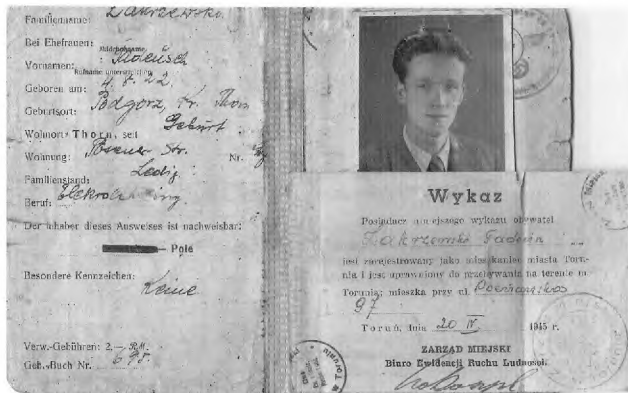 Familienname: Zakrzewski
Bei Ehefrauen: Mädchenname
Vornamen: Tadeusch
Rufname unterstreichen
Geboren am: 4.8.22
Geburtsort: Podgorz, Kr. Thorn
Wohnort: Thorn, seit Geburt
Wohnung: Posener Str. Nr.
Familienstand: Ledig
Beruf:
Der Inhaber dieses Ausweises ist nachweisbar:
Pole
Besondere Kennzeichen:
Keine
Verw.-Gebühren: 2,— RM.
Geb.-Buch Nr.
Wykaz
Posiadacz niniejszego wykazu obywatel
Zakrzewski Tadeusz
jest zarejestrowany jako mieszkaniec miasta Toru-
nia i jest uprawniony do przebywania na terenie m.
Torunia; mieszka przy ul. Poznańska
97
Toruń, dnia 20 IV 1945 r.
ZARZĄD MIEJSKI
Biuro Ewidencji Ruchu Ludności.